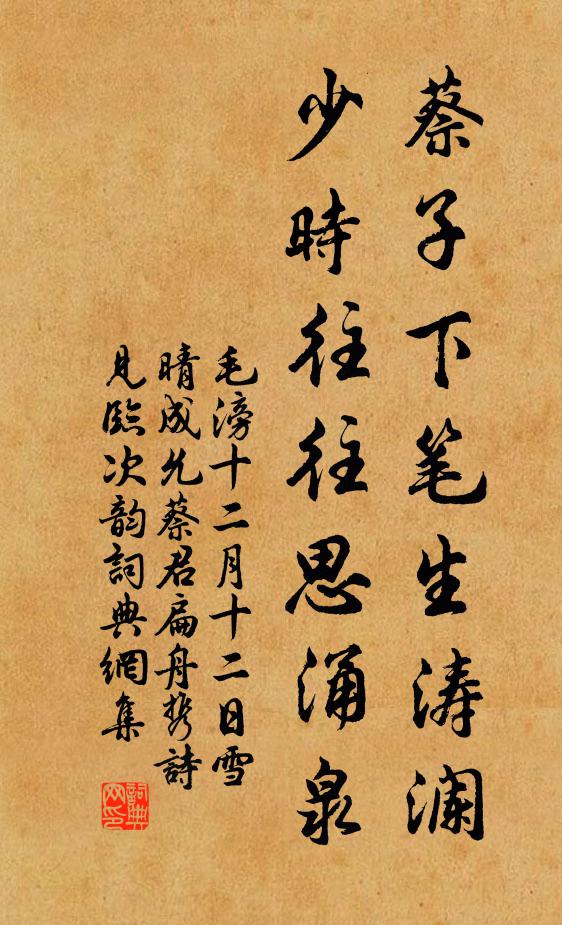 蔡子下笔生涛澜
少時往往思涌泉
毛滂十二月十二日雪
晴成允蔡君扁舟携詩
見臨次韵詞典網集
詞典
网印